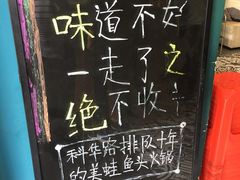 味道不好
一走了之
绝不收
科华路排队十年
的美蛙鱼头火锅